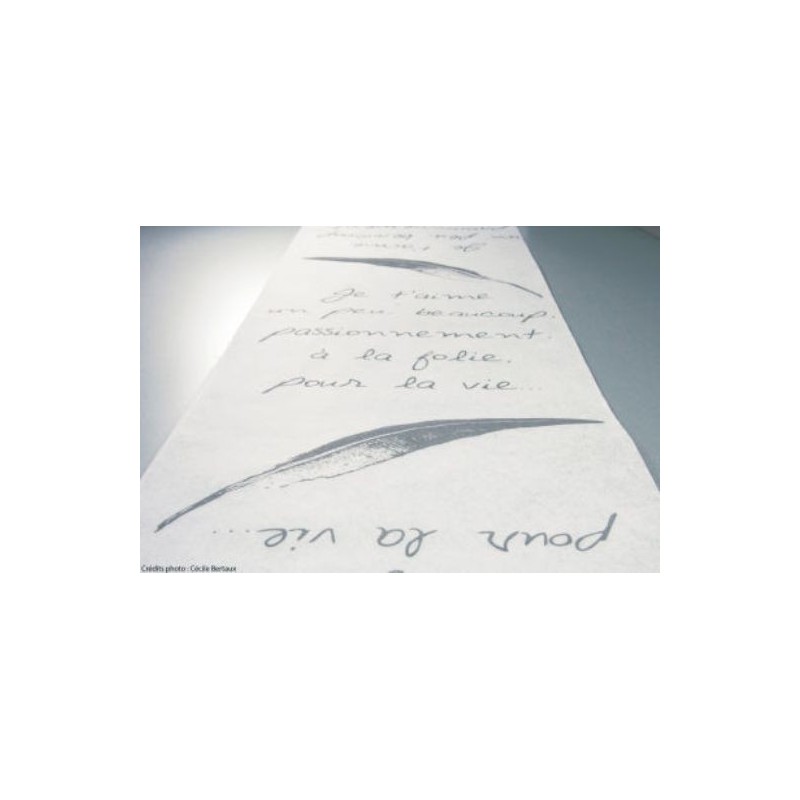 un peu beaucoup.
Je t'aime
Je t'aime
un peu beaucoup.
passionnement.
à la folie.
pour la vie...
pour la vie...
Crédits photo : Cécile Bertaux